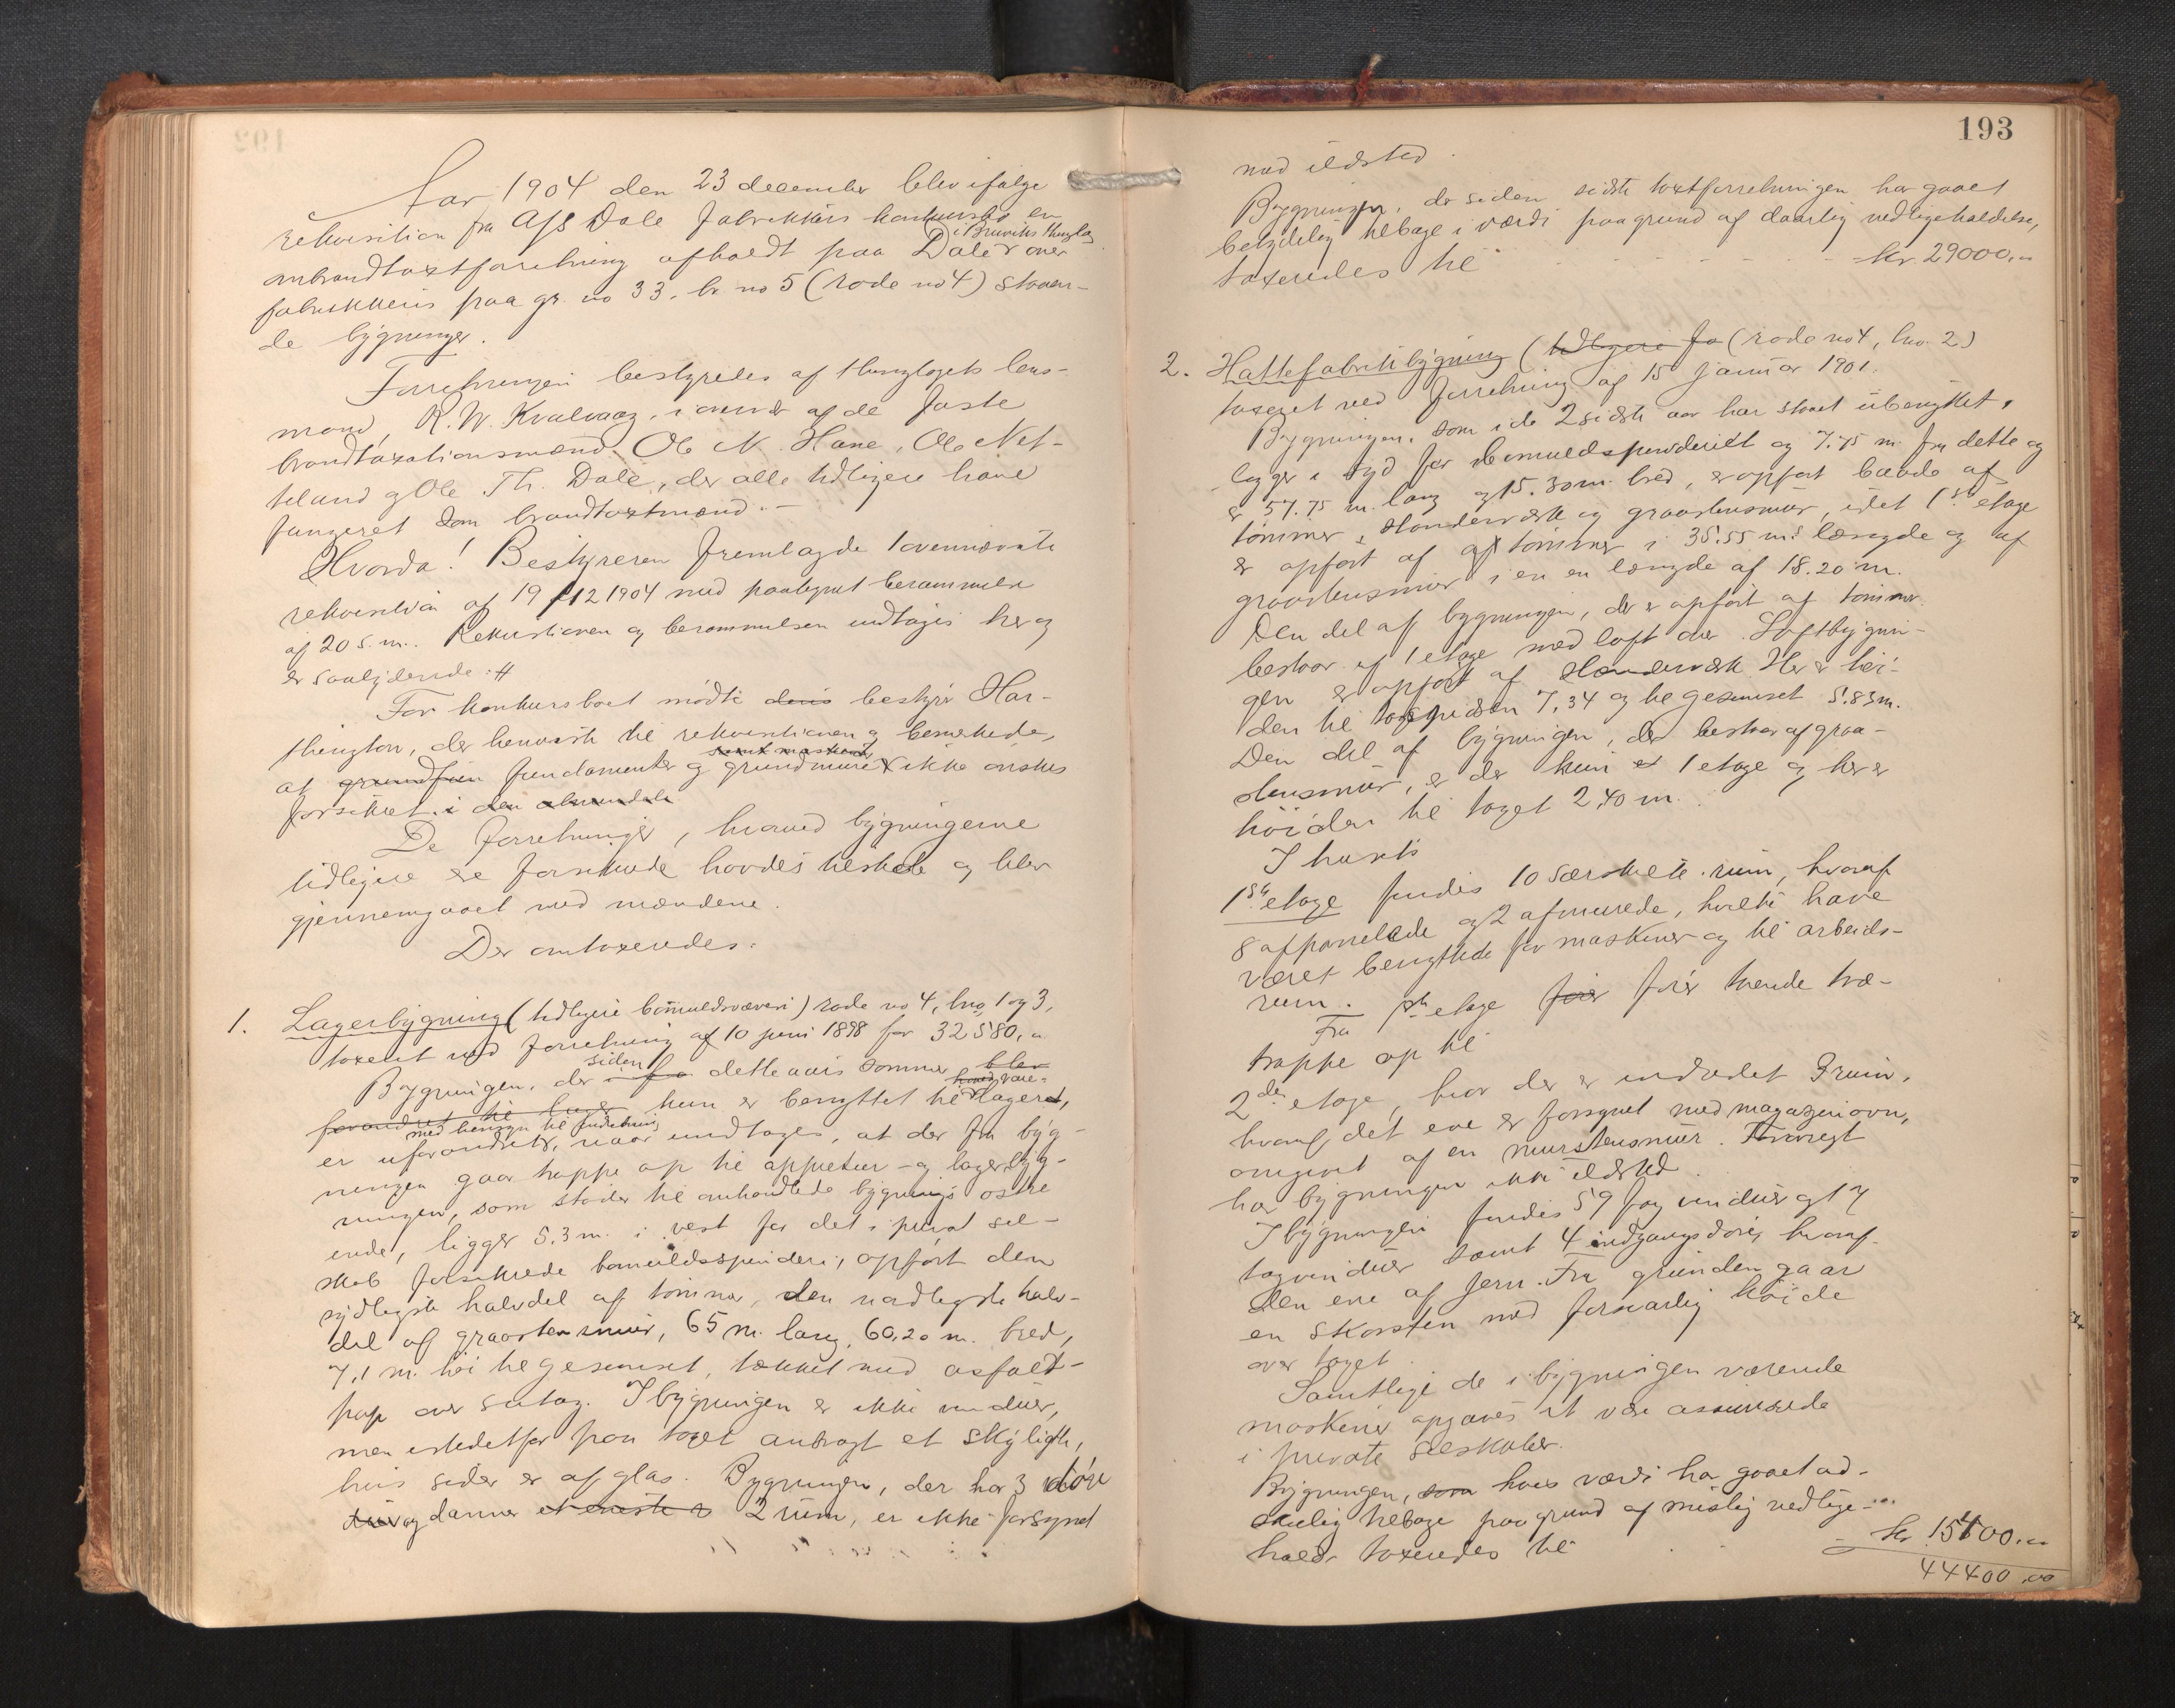 Aar 1904 den 23 december blev ifølge
rekvisition fra A/S Dale fabrikkers konkursbo en
i Bruviks thinglag
ombrandtaxtforretning afholdt paa Dale over
fabrikkens paa gr. no 33, br. no 5 (rode no 4) staaen-
de bygninger.
Forretningen bestyredes af thinglagets lens-
mand R. W. Kvalvaag, i overvær af de faste
brandtaxationsmænd Ole N. Hane, Ole Net-
teland og Ole Th. Dale, der alle tidligere have
fungeret som brandtaxtmænd. -
Hvorda! Bestyreren fremlagde 1 ovennævnte
rekvisition af 19/12 1904 med paategnet berammelse
af 20 s. m. Rekvisitionen og berammelsen indtages her og
er saalydende: #
For konkursboet mødte dens bestyrer Har-
thington, der henviste til rekvisitionen og bemerkede,
samt maskiner
at grundfun fundamenter og grundmure ikke ønskes
forsikret i den
De forretninger, hvorved bygningerne
tidligere ere forsikrede havdes tilstede og blev
gjennemgaaet med mændene.
Der omtaxeredes:
1. Lagerbygning (tidligere bomuldsvæveri) rode no 4, lno 1 og 3,
taxeret ved forretning af 10 juni 1898 for 32580,00
siden
Bygningen, der fra dette aars sommer blev
forandret til lager kun er benyttet til varelager,
med hensyn til indretning
er uforandret, naar undtages, at der fra byg-
ningen gaar trappe op til appretur- og lagerbyg-
ningen, som støder til omhandlede bygnings østre
ende, ligger 5.3 m. i vest for det i privat sel-
skab forsikrede bomuldsspinderi, opført den
sydligste halvdel af tømmer, den nordligste halv-
del af graastensmur, 65 m. lang, 60,20 m. bred,
7,1 m. høi til gesimset, tækket med asfalt-
pap over sutag. I bygningen er ikke vinduer,
men istedetfor paa taget anbragt et skylight,
hvis sider er af glas. Bygningen, der har 3 døre
og danner et eneste r 2 rum, er ikke forsynet
193
med ildsted.
Bygningen, der siden sidste taxtforretningen har gaaet
betydelig tilbage i værdi paa grund af daarlig vedligeholdelse,
taxeredes til - - - - - - kr. 29000,00
2. Hattefabrikbygning (tidligere fa (rode no 4, lno. 2)
taxeret ved forretning af 15 januar 1901.
Bygningen, som i de 2 sidste aar har staaet ubenyttet,
ligger i syd for bomuldsspinderiet og 7.75 m. fra dette og
er 57.75 m. lang og 15.30 m. bred, er opført baade af
tømmer, stenderværk og graastensmur, idet 1ste etage
er opført af af tømmer i 35.55 m.s længde og af
graastensmur i en en længde af 18.20 m.
Den del af bygningen, der er opført af tømmer
bestaar af 1 etage med loft over. Loftbygnin-
gen er opført af stenderværk. Her er høi-
den til tagspidsen 7,34 og til gesimset 5.83 m.
Den del af bygningen, der bestaar af graa-
stensmur, er der kun et 1 etage og her er
høiden til taget 2,40 m.
I husets
1ste etage findes 10 særskilte rum, hvoraf
8 afpanelede og 2 afmurede, hvilke have
været benyttede for maskiner og til arbeids-
rum.
Fra 1ste etage fører fører tvende træ-
trappe op til
2den etage, hvor der er indredet 9 rum,
hvoraf det ene er forsynet med magasinovn,
omgivet af en murstensmur. Forøvrigt
har bygningen ikke ildsted.
I bygningen findes 59 fag vinduer og 17
tagvinduer samt 4 indgangsdøre, hvoraf
den ene af jern. Fra grunden gaar
en skorsten med forsvarlig høide
over taget.
Samtlige de i bygningen værende
maskiner opgaves at være assurerede
i private selskaber.
Bygningen, som hvis værdi har gaaet ad-
skillig tilbage paa grund af mislig vedlige-
hold, taxeredes til - - - kr. 15400,00
44400,00